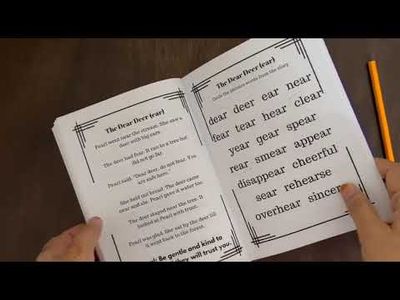 The Dear Deer (ear)
Pearl went near the stream. She saw a
deer with big ears.
The deer had fear. It ran to a tree but
did not go far.
Pearl said, "Dear deer, do not fear. You
are safe here."
She held out bread. The deer came
near and ate. Pearl gave it water too.
The deer stayed near the tree. It
looked at Pearl with trust.
Pearl was glad. She sat by the deer till
it went back to the forest.
Be gentle and kind to
they will trust you.
The Dear Deer (ear)
Circle the phonics words from the story
dear deer ear near
fear tear hear clear
year gear spear
rear smear appear
disappear cheerful
sear rehearse
overhear sincere